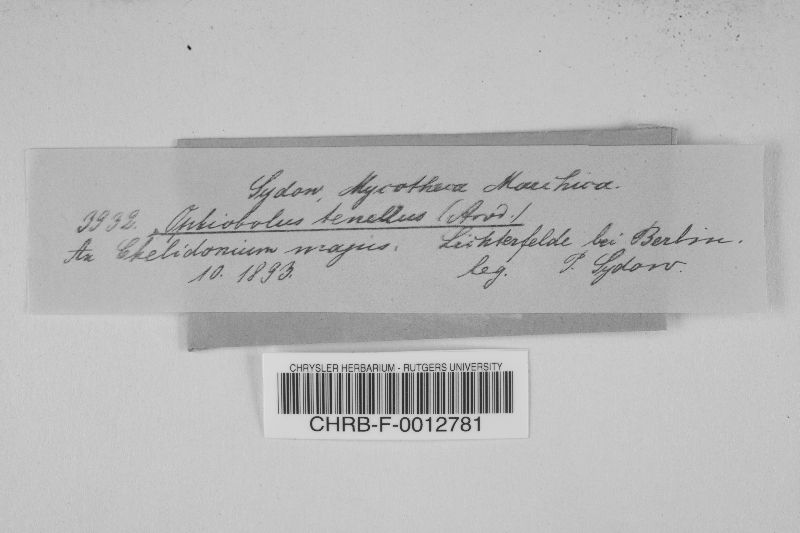 Sydow, Mycotheca Marchica.
3932. Ophiobolus tenellus (Awd.)
An Chelidonium majus. Lichterfelde bei Berlin.
10. 1893. leg. P. Sydow.
CHRYSLER HERBARIUM - RUTGERS UNIVERSITY
CHRB-F-0012781